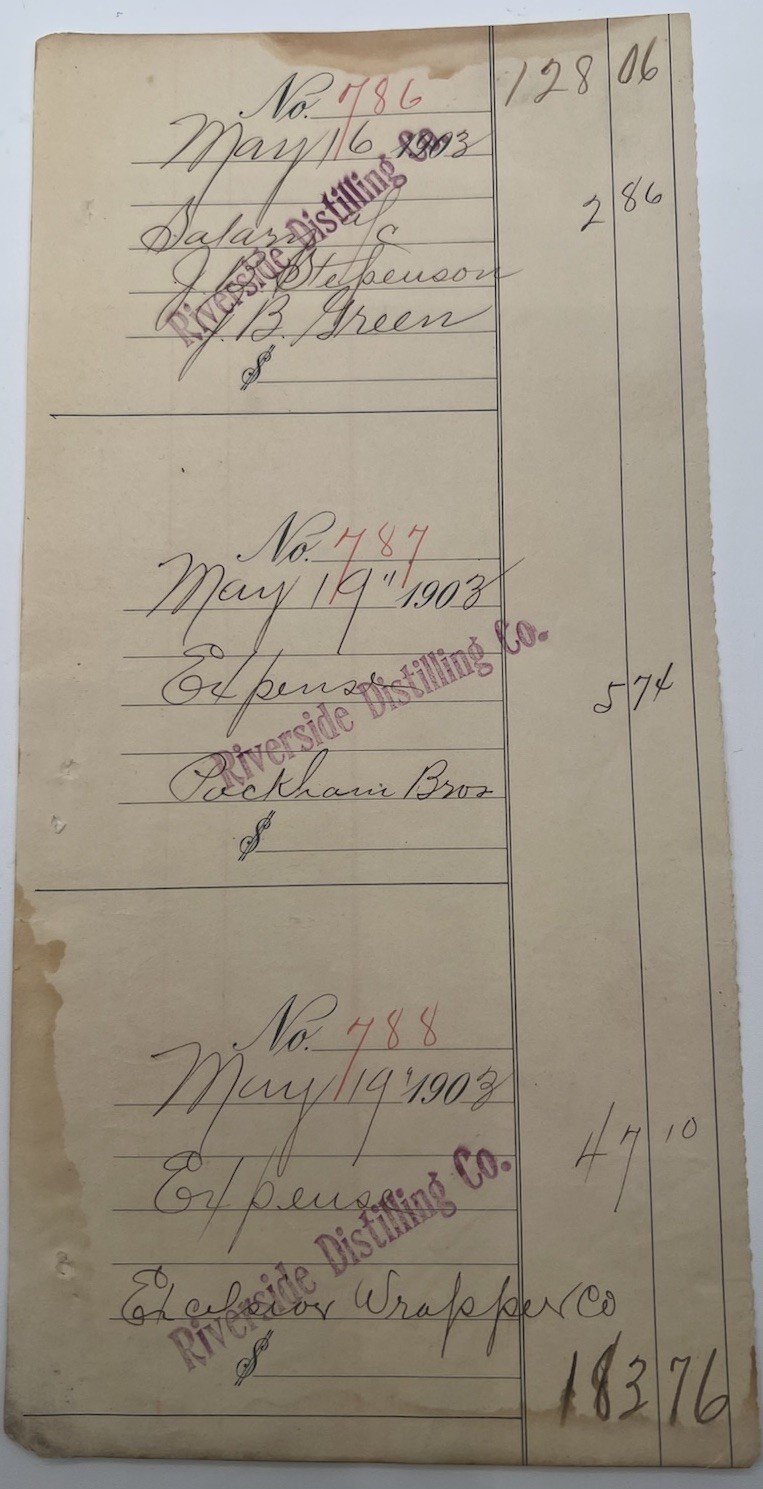 128 06
No. 786
May 16 1903
Riverside Distilling Co.
Salary a/c
2 86
J. Stepenson
J. B. Green
$
No. 787
May 19" 1903
Riverside Distilling Co.
Expense
5 74
Packham Bros
$
No. 788
May 19" 1903
47 10
Expense
Riverside Distilling Co.
Excelsior Wrapper Co
$
183 76